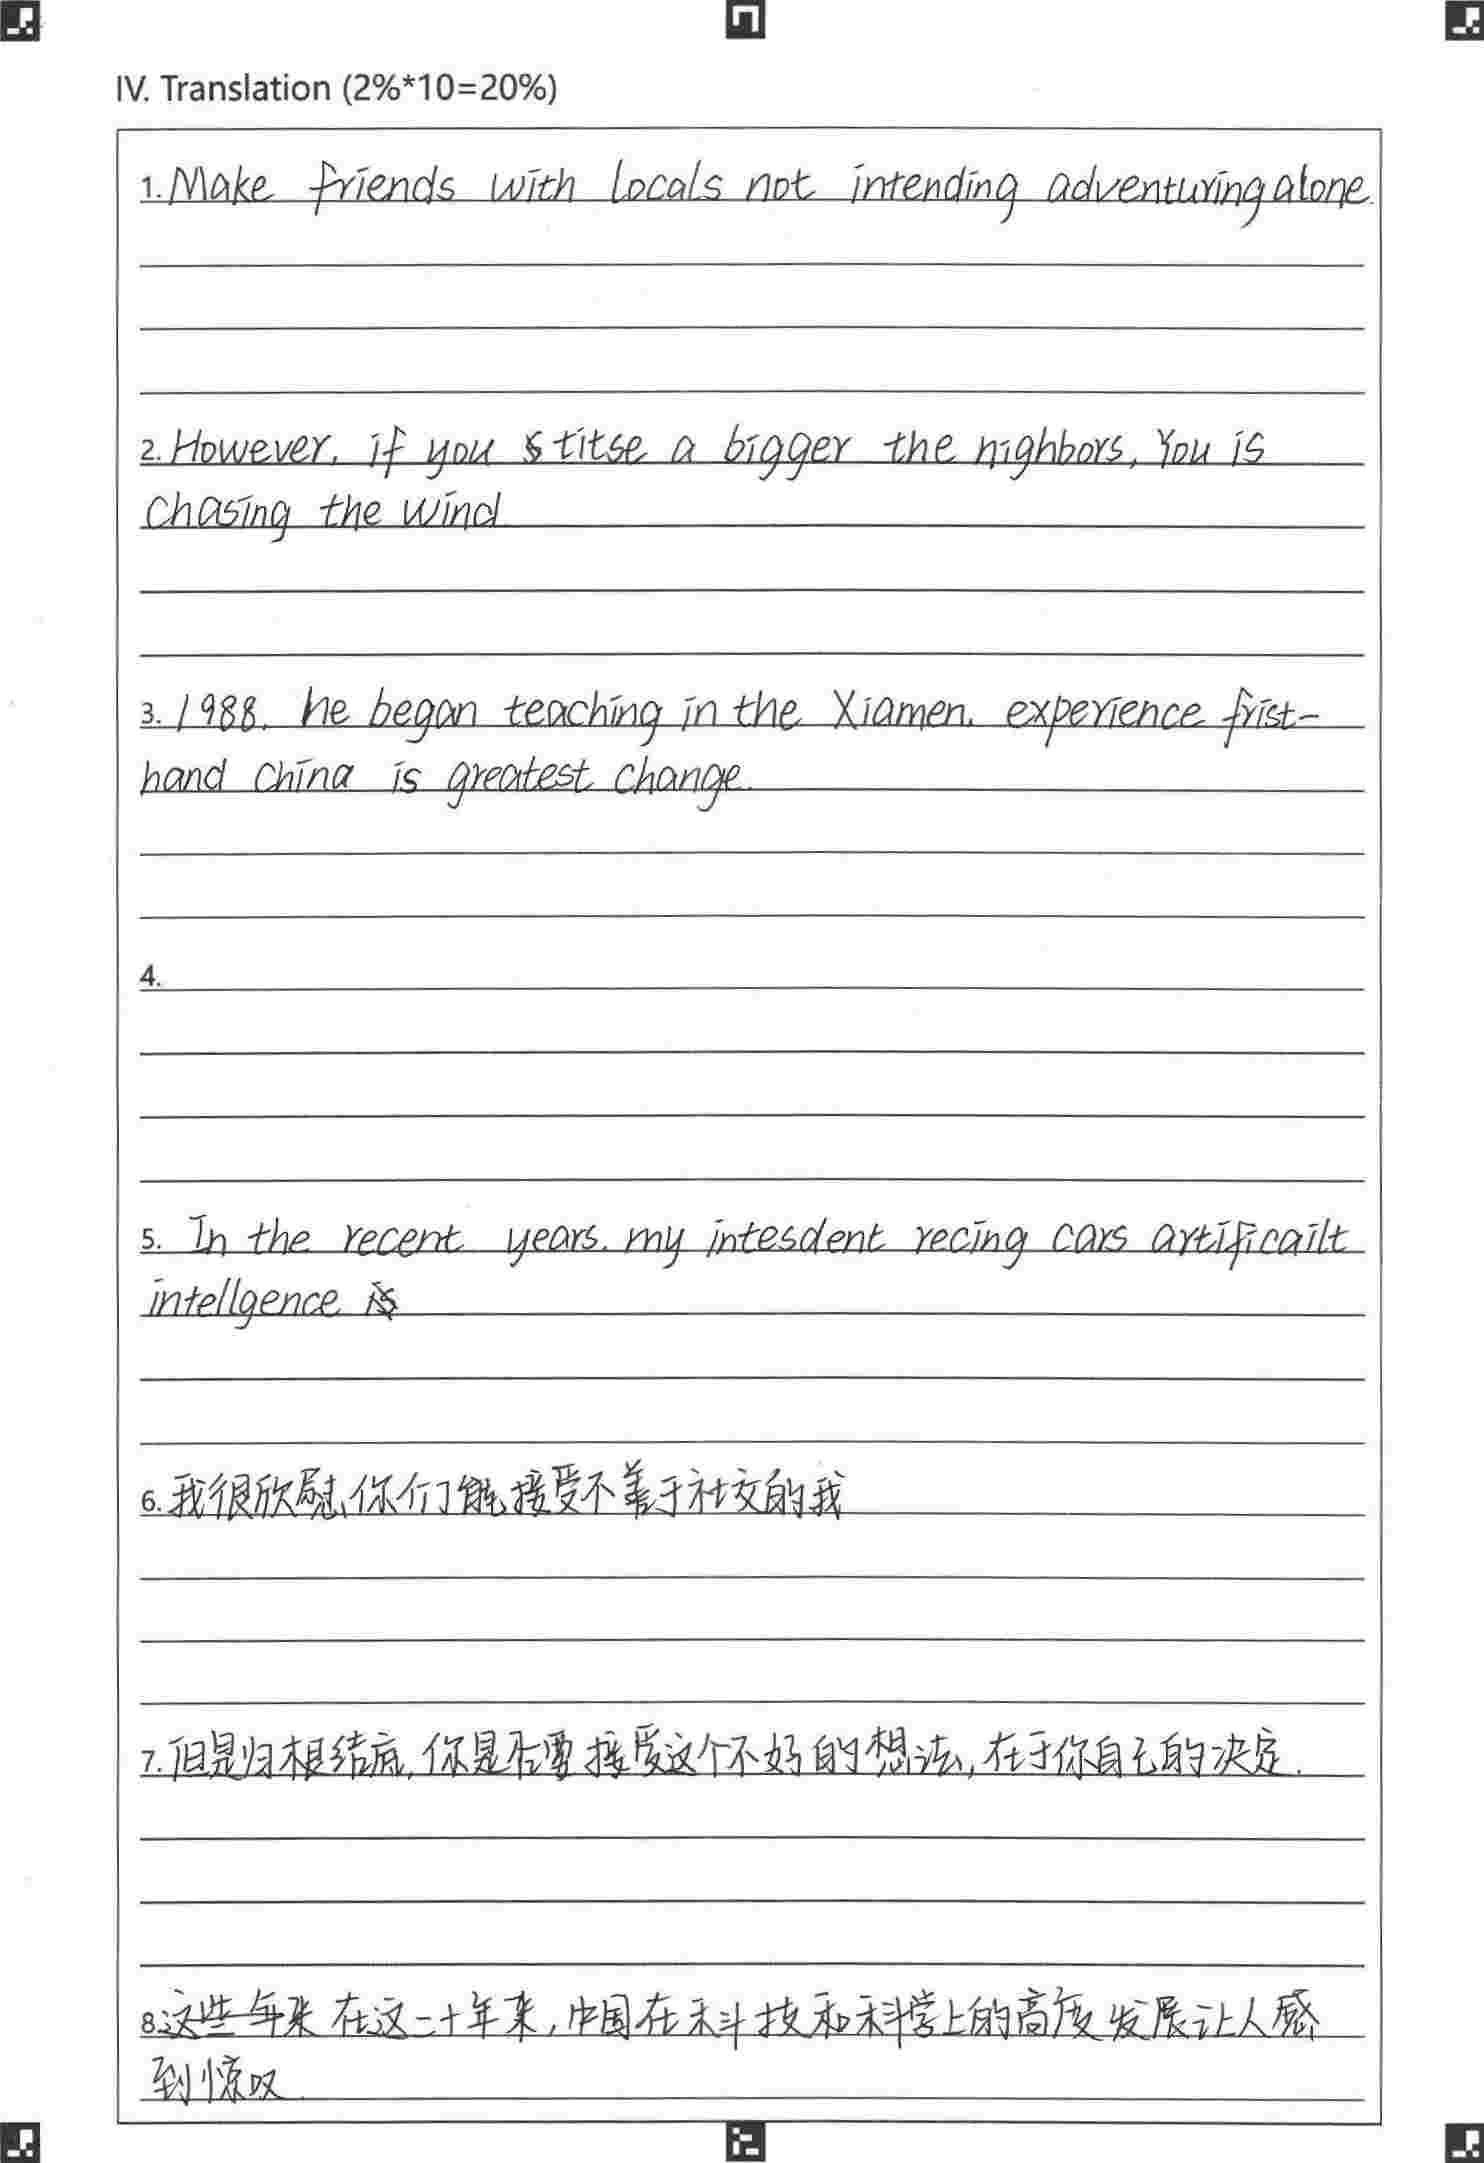 IV. Translation (2%*10=20%)
1. Make friends with locals not intending adventuring alone.
2. However, if you stitse a bigger the nighbors, You is
chasing the wind
3. 1988, he began teaching in the Xiamen. experience frist-
hand China is greatest change.
4.
5. In the recent years. my intesdent recing cars artificailt
intellgence is
6. 我很欣慰你们能接受不善于社交的我
7. 但是归根结底,你是否要接受这个不好的想法,在于你自己的决定.
8. 这些年来 在这二十年来,中国在科技和科学上的高度发展让人感
到惊叹.